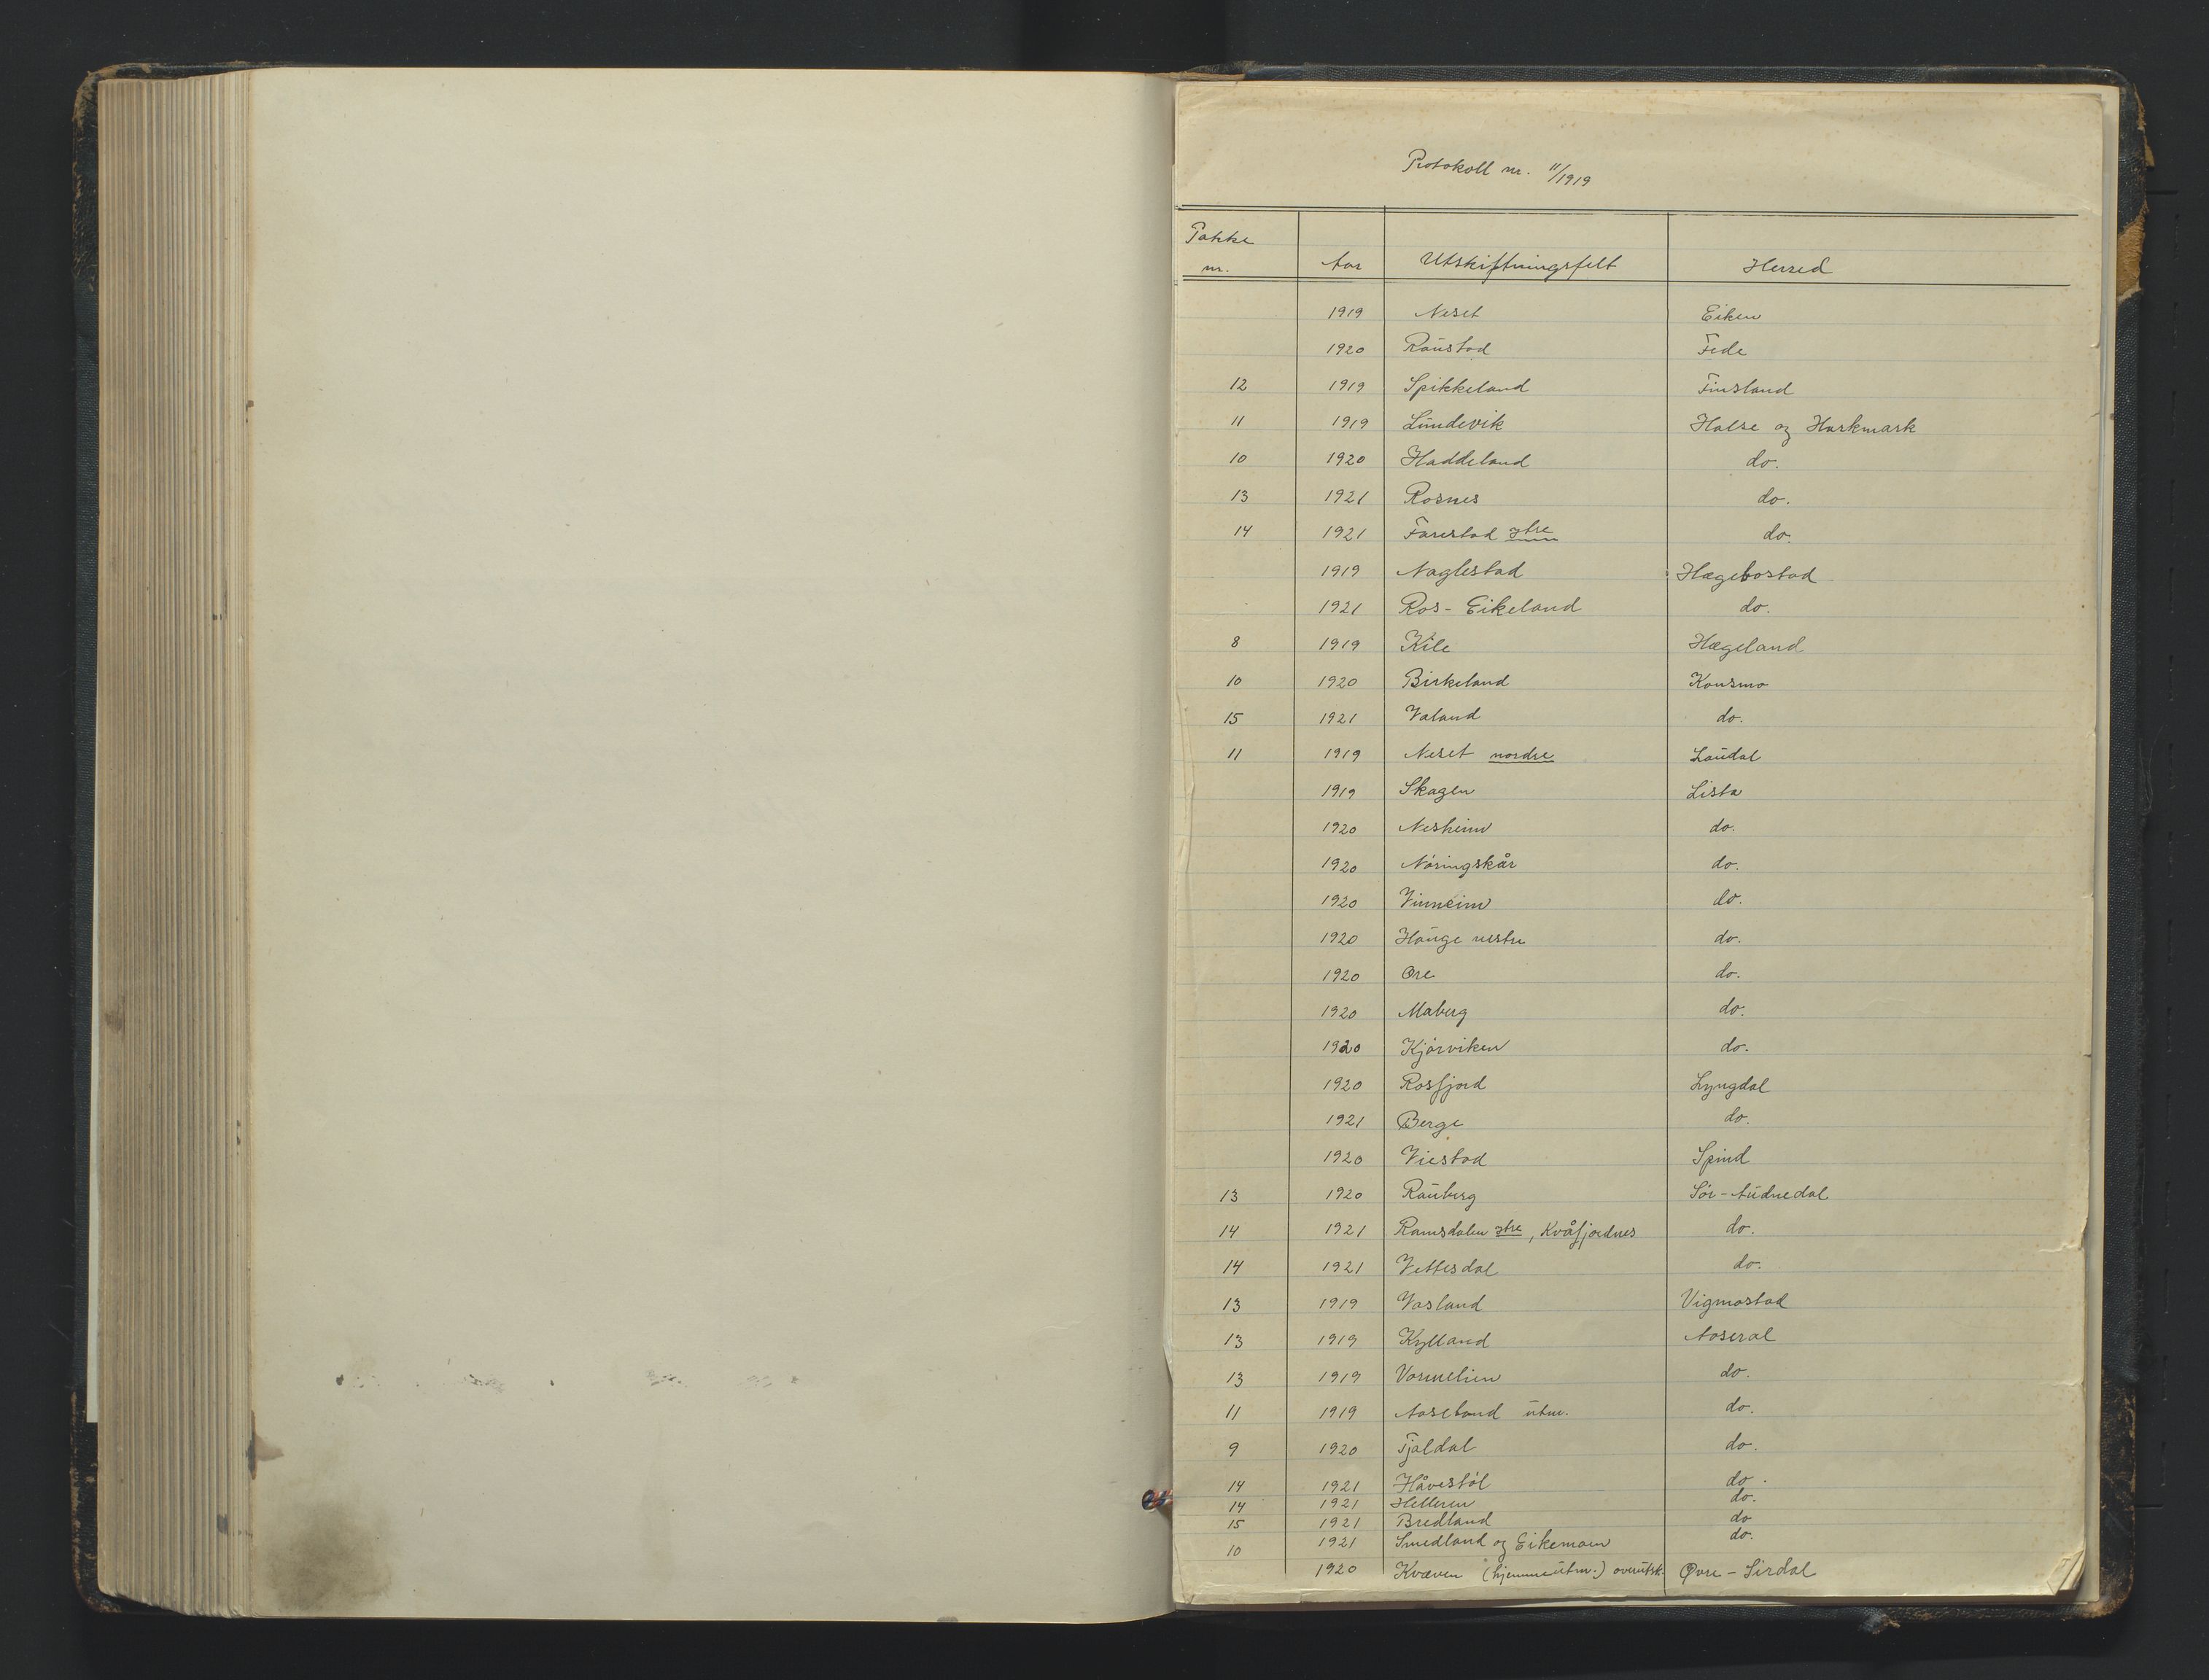 Protokoll nr. 11/1919
Pakke nr. Aar Utskiftningsfelt Herred
1919 Neset Eiken
1920 Raustad Fede
12 1919 Spikkeland Finsland
11 1919 Lundevik Halse og Harkmark
10 1920 Haddeland do.
13 1921 Rosnes do.
14 1921 Farestad ytre do.
1919 Naglestad Hægebostad
1921 Ros-Eikeland do.
8 1919 Kile Hægeland
10 1920 Birkeland Konsmo
15 1921 Valand do.
11 1919 Neset nordre Laudal
1919 Skagen Lista
1920 Nesheim do.
1920 Nøringskår do.
1920 Vinneim do.
1920 Hauge vestre do.
1920 Øre do.
1920 Maberg do.
1920 Kjørviken do.
1920 Rosfjord Lyngdal
1921 Berge do.
1920 Viestad Spind
13 1920 Rauberg Sør-Audnedal
14 1921 Ramsdalen ytre, Kvåfjordnes do.
14 1921 Vettesdal do.
13 1919 Vasland Vigmostad
13 1919 Kylland Aaseral
13 1919 Vormelien do.
11 1919 Aasland utm. do.
9 1920 Tjaldal do.
14 1921 Håvestøl do.
14 1921 Helleren do.
15 1921 Bredland do
10 1921 Smedland og Eikemoen do.
1920 Kvæven (hjemmeutm.) overutsk. Øvre-Sirdal